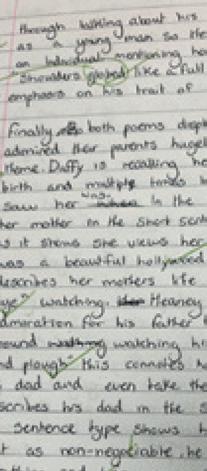 through talking about his
as a young man so the
an individual mentioning ho
shoulders globed like a full
emphasis on his trait of
Finally both poems disp
admired their parents hugel
theme. Duffy is recalling he
birth and multiple times
saw her was in the
her mother in the short sent
s it shows she views her
was a beautiful hollywood
describes her mothers life
watching. Heaney
dmiration for his father
ound watching hi
nd plough" this connotes h
dad and even take the
scribes his dad in the s
sentence type shows h
t as non-negotiable, he